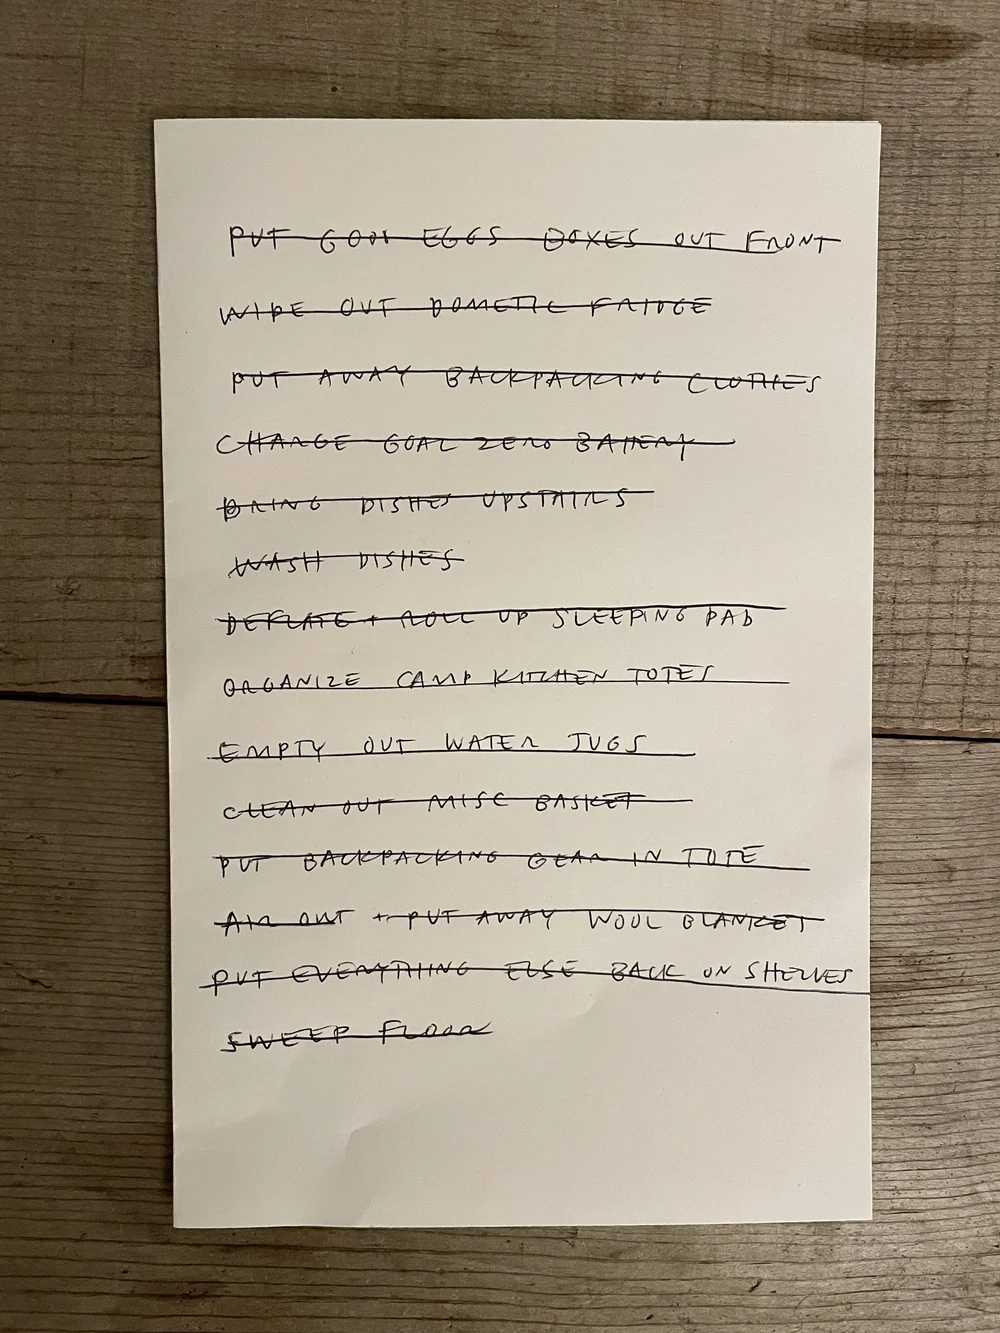 PUT GOOD EGGS BOXES OUT FRONT
WIPE OUT DOMETIC FRIDGE
PUT AWAY BACKPACKING CLOTHES
CHANGE GOAL ZERO BATTERY
BRING DISHES UPSTAIRS
WASH DISHES
DEFLATE + ROLL UP SLEEPING PAD
ORGANIZE CAMP KITCHEN TOTES
EMPTY OUT WATER JUGS
CLEAN OUT MISC BASKET
PUT BACKPACKING GEAR IN TOTE
AIR OUT + PUT AWAY WOOL BLANKET
PUT EVERYTHING ELSE BACK ON SHELVES
SWEEP FLOOR